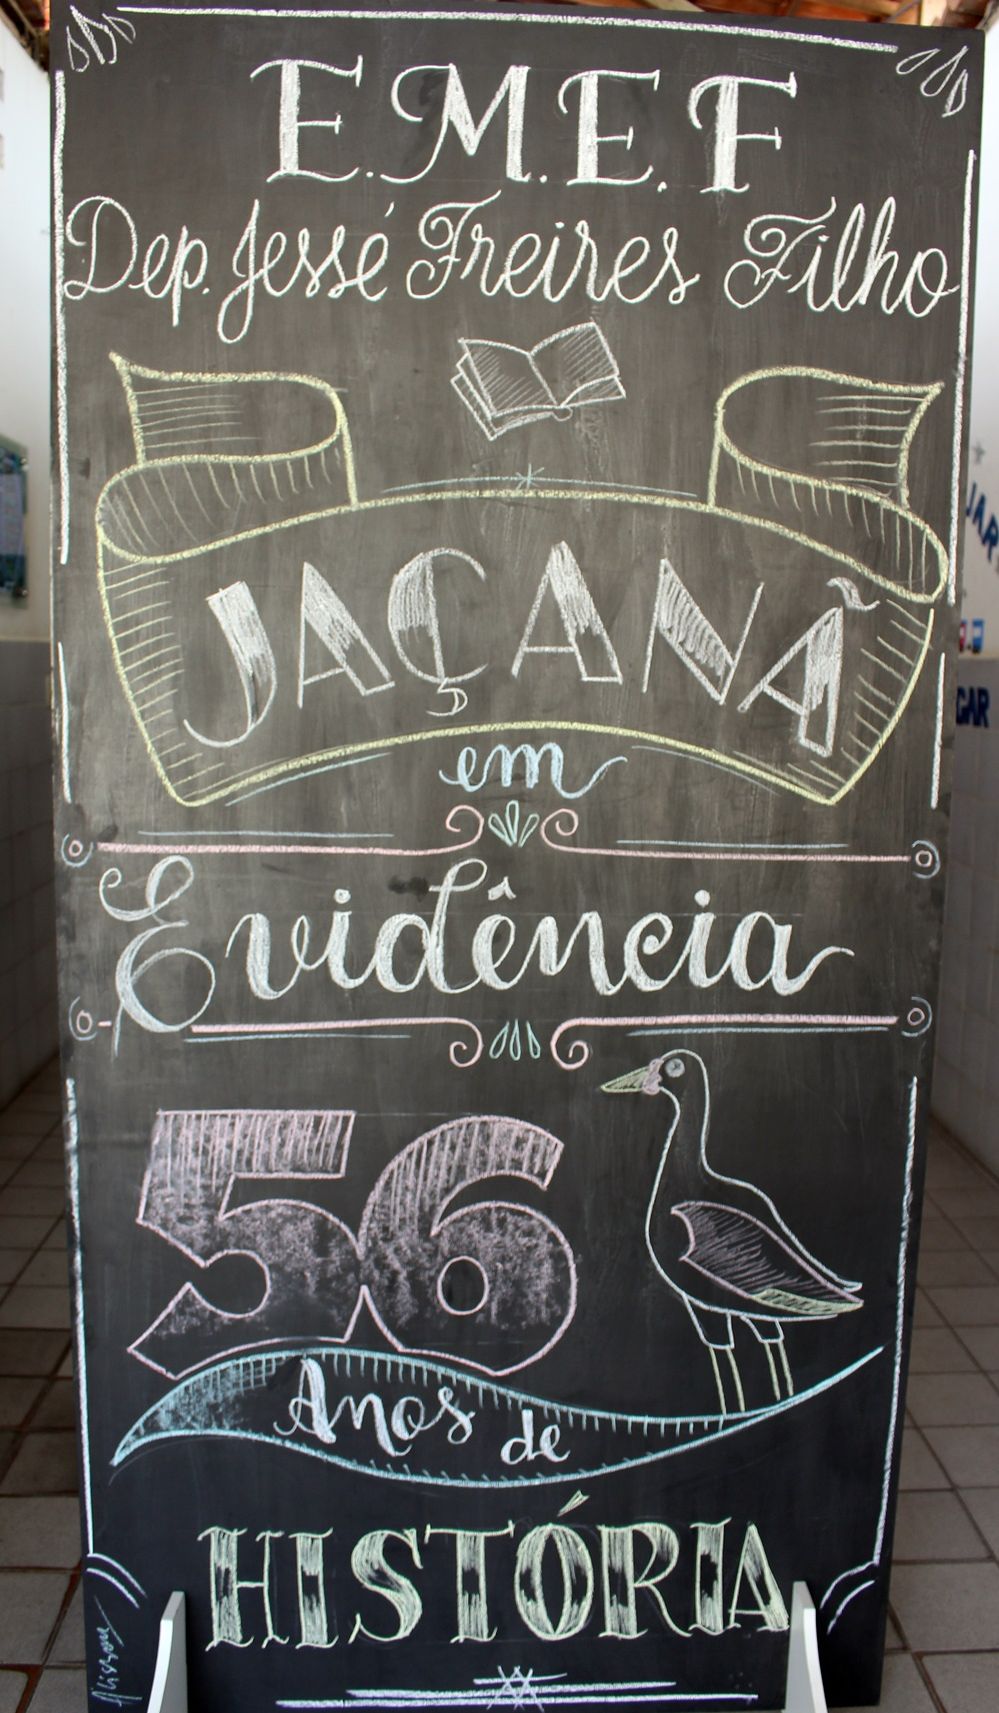 E.M.E.F
Dep. Jessé Freires Filho
JAÇANÃ
em
Evidência
56
Anos de
HISTÓRIA
Alisson
JAR
GAR